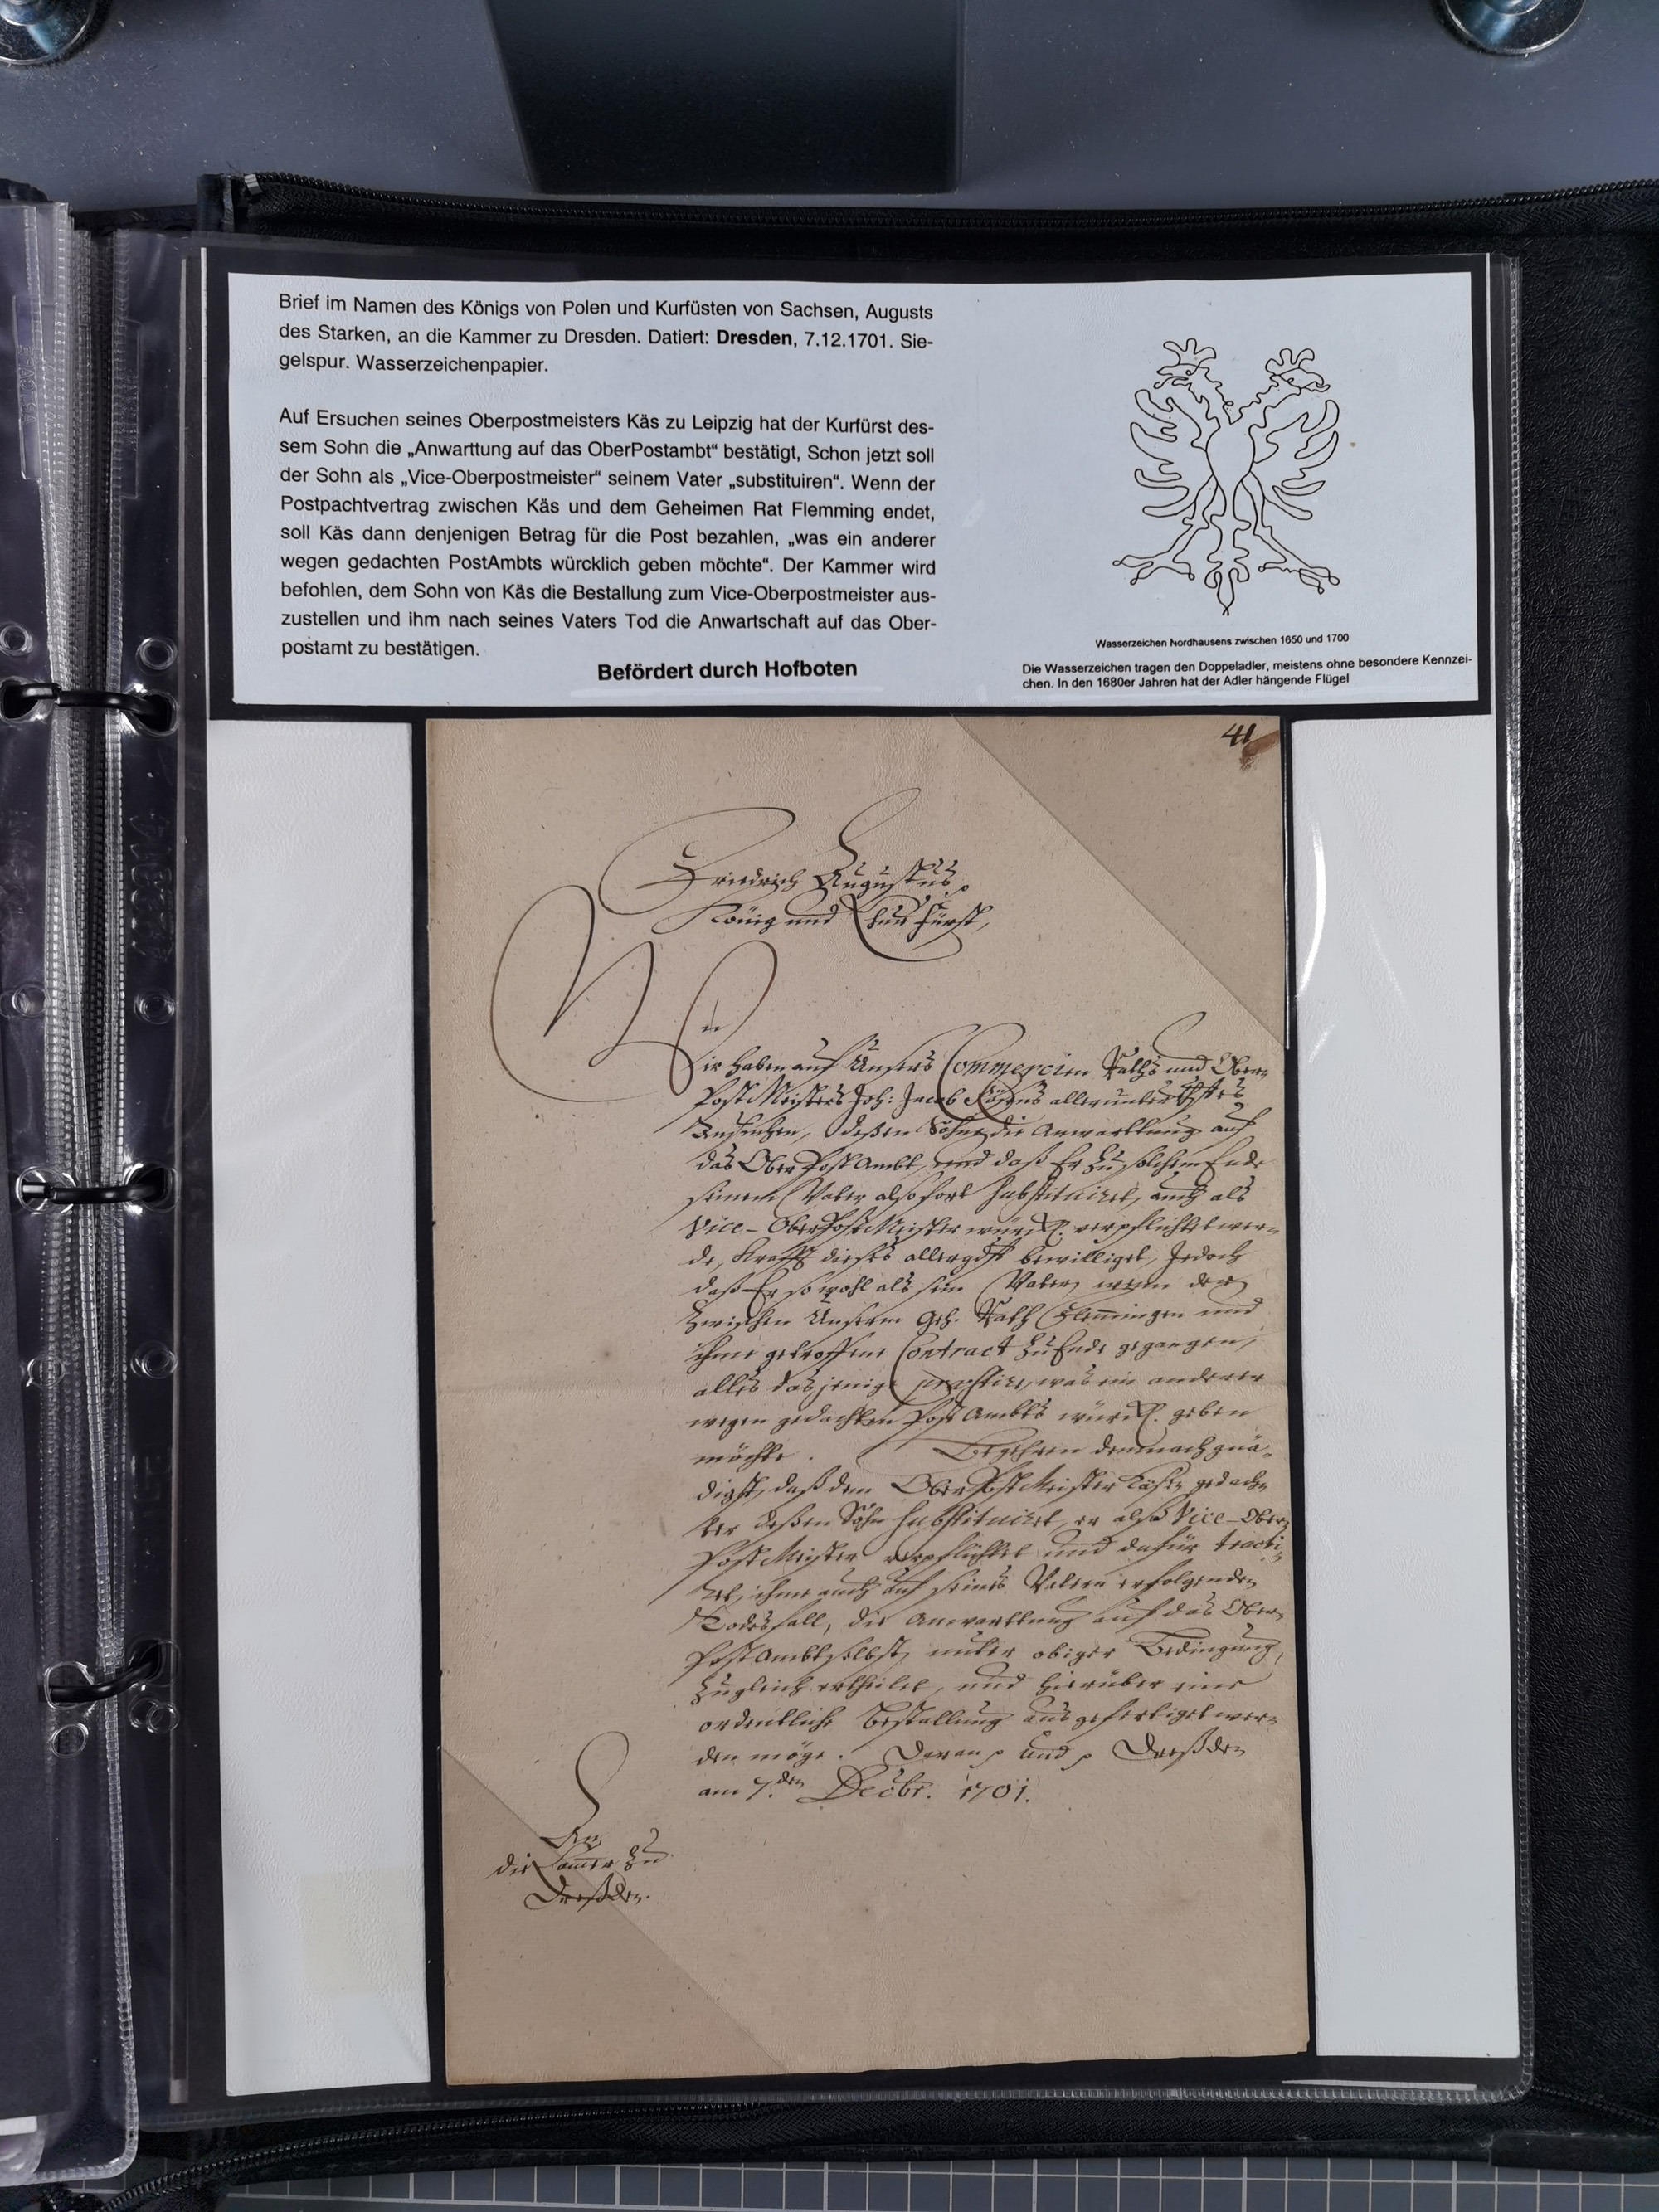 Brief im Namen des Königs von Polen und Kurfüsten von Sachsen, Augusts
des Starken, an die Kammer zu Dresden. Datiert: Dresden, 7.12.1701. Sie-
gelspur. Wasserzeichenpapier.
Auf Ersuchen seines Oberpostmeisters Käs zu Leipzig hat der Kurfürst des-
sem Sohn die „Anwarttung auf das OberPostambt“ bestätigt, Schon jetzt soll
der Sohn als „Vice-Oberpostmeister“ seinem Vater „substituiren“. Wenn der
Postpachtvertrag zwischen Käs und dem Geheimen Rat Flemming endet,
soll Käs dann denjenigen Betrag für die Post bezahlen, „was ein anderer
wegen gedachten PostAmbts würcklich geben möchte“. Der Kammer wird
befohlen, dem Sohn von Käs die Bestallung zum Vice-Oberpostmeister aus-
zustellen und ihm nach seines Vaters Tod die Anwartschaft auf das Ober-
postamt zu bestätigen.
Befördert durch Hofboten
Wasserzeichen Nordhausens zwischen 1650 und 1700
Die Wasserzeichen tragen den Doppeladler, meistens ohne besondere Kennzei-
chen. In den 1680er Jahren hat der Adler hängende Flügel
41
Friedrich Augustus
König und Churfürst,
Wir haben auf Unsers Commercien Raths und Ober-
PostMeisters Joh: Jacob Käsens
Ansuchen, deßen Sohne die Anwarttung auf
das OberPostAmbt, und daß Er zu solchem Ende
seinem Vater alsofort substituiret, auch als
Vice-OberPostMeister würckl. verpflichtet wer-
de, Krafft dieses allergdst bewilliget, Jedoch
daß Er so wohl als sein Vater, wenn der
zwischen Unserm Geh. Rath Flemmingen und
ihme getroffene Contract zu Ende gegangen,
alles dasjenige praestire, was ein anderer
wegen gedachten PostAmbts würckl. geben
möchte. Begehren demnach gnä-
digst, daß dem OberPostMeister Käsen gedach-
ter deßen Sohn substituiret, er als Vice-Ober-
PostMeister verpflichtet und dafür tracti-
ret, ihme auch auf seines Vatern erfolgenden
Todesfall, die Anwarttung auf das Ober-
PostAmbt selbst, unter obiger Bedingung,
zugleich ertheilet, und hierüber eine
ordentliche Bestallung ausgefertiget wer-
den möge. Daran und Dreßden
am 7.den Decbr. 1701.
An
die Cammer zu
Dreßden.